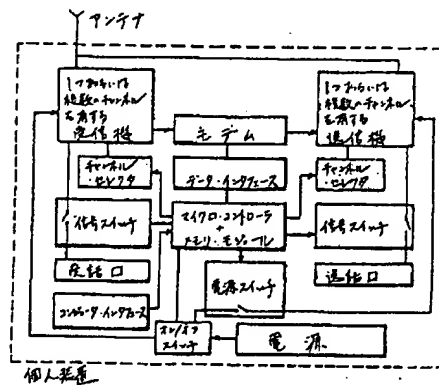 アンテナ
1つあるいは
複数のチャンネル
を有する
受信機
モデム
1つあるいは
複数のチャンネル
を有する
送信機
チャンネル
・セレクタ
データ・インタフェース
チャンネル
・セレクタ
信号スイッチ
マイクロ・コントローラ
+
メモリ・モジュール
信号スイッチ
受話口
電源
スイッチ
送話口
コンピュータ・インタフェース
オン/オフ
スイッチ
電源
個人装置